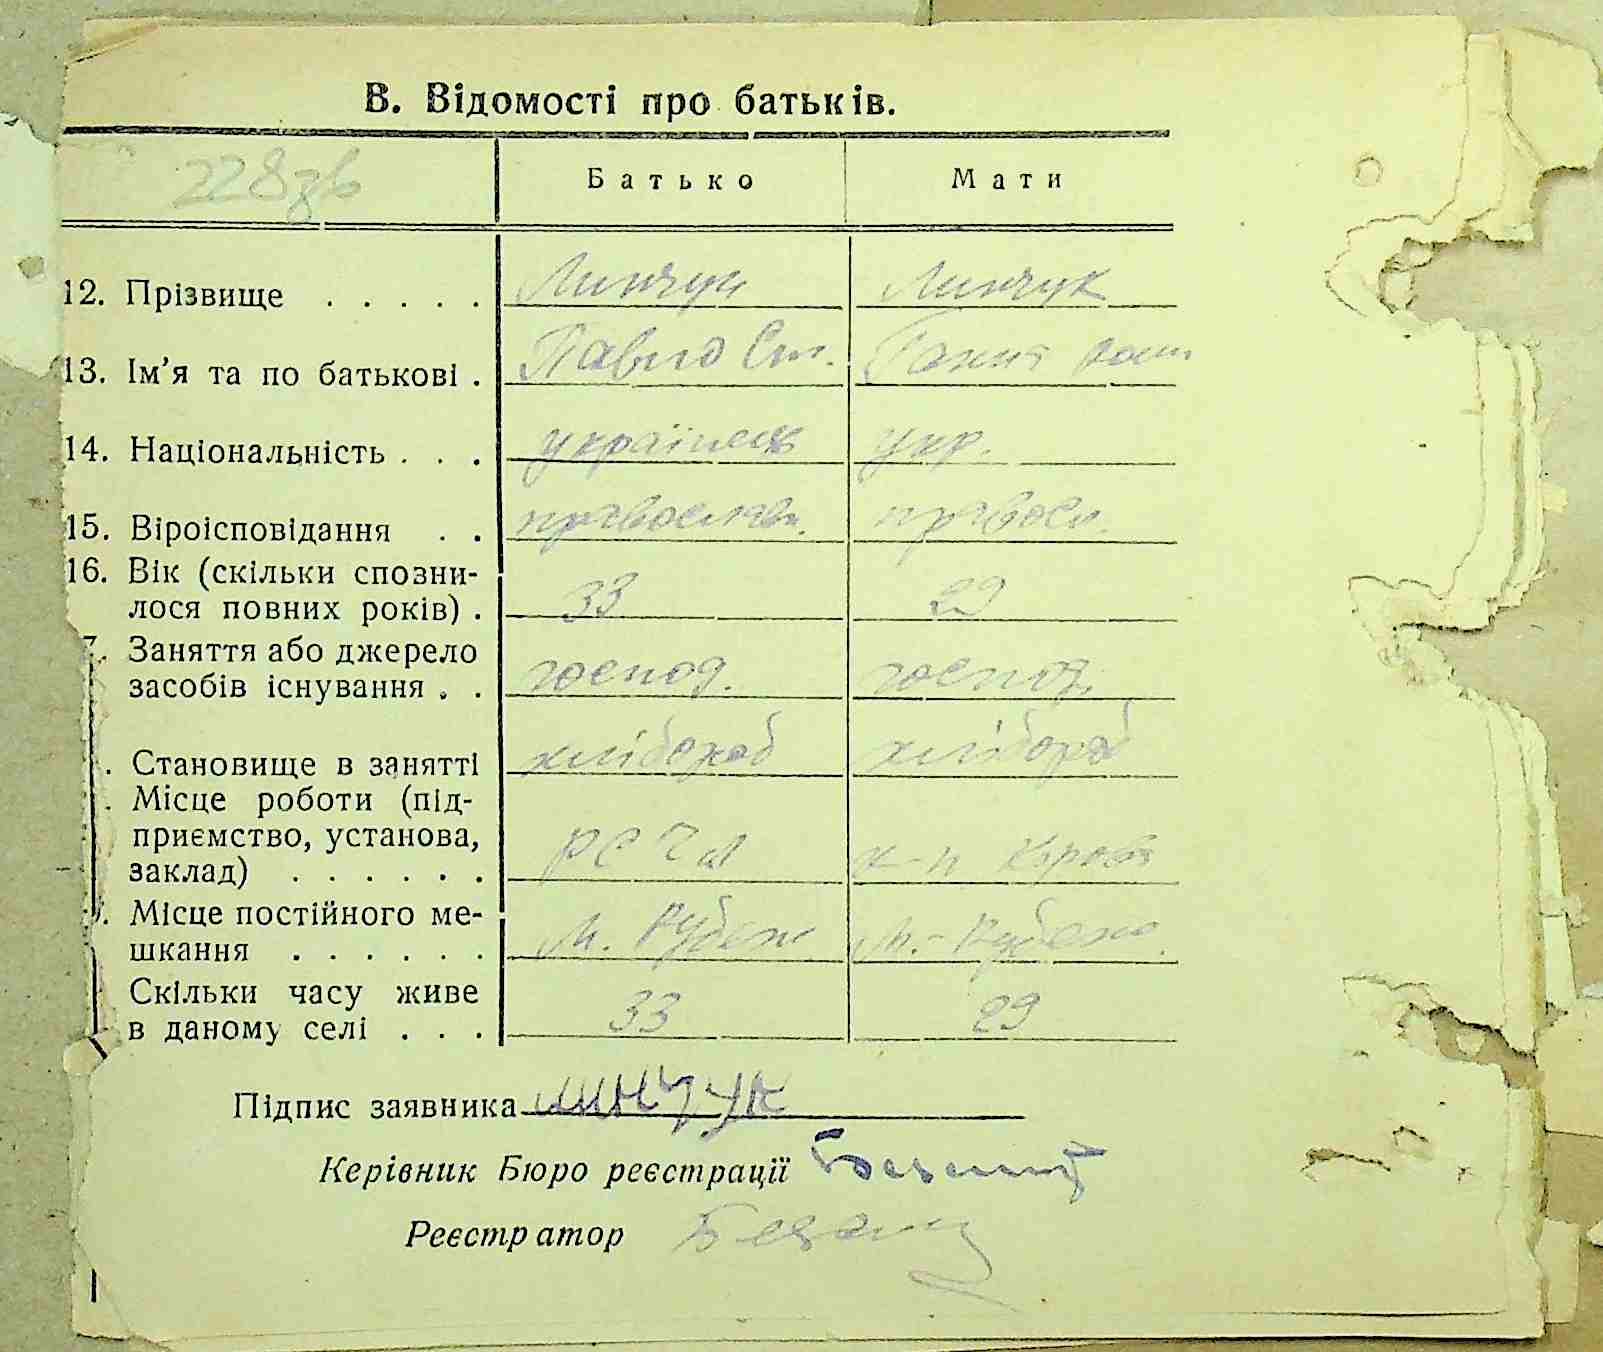 В. Відомості про батьків.
228зв
Батько Мати
12. Прізвище . . . . . Линчук Линчук
13. Ім'я та по батькові . Павло Ст. Ганна
14. Національність . . . українець укр.
15. Віроісповідання . . православн. правосл.
16. Вік (скільки спозни-
лося повних років) . 33 29
7. Заняття або джерело
засобів існування . . господ. господ.
. Становище в занятті хлібороб хлібороб
. Місце роботи (під-
приємство, установа,
заклад) . . . . . .
. Місце постійного ме-
шкання . . . . . . М. Рубеж М.-Рубеж.
Скільки часу живе
в даному селі . . . 33 29
Підпис заявника Линчук
Керівник Бюро реєстрації
Реєстратор